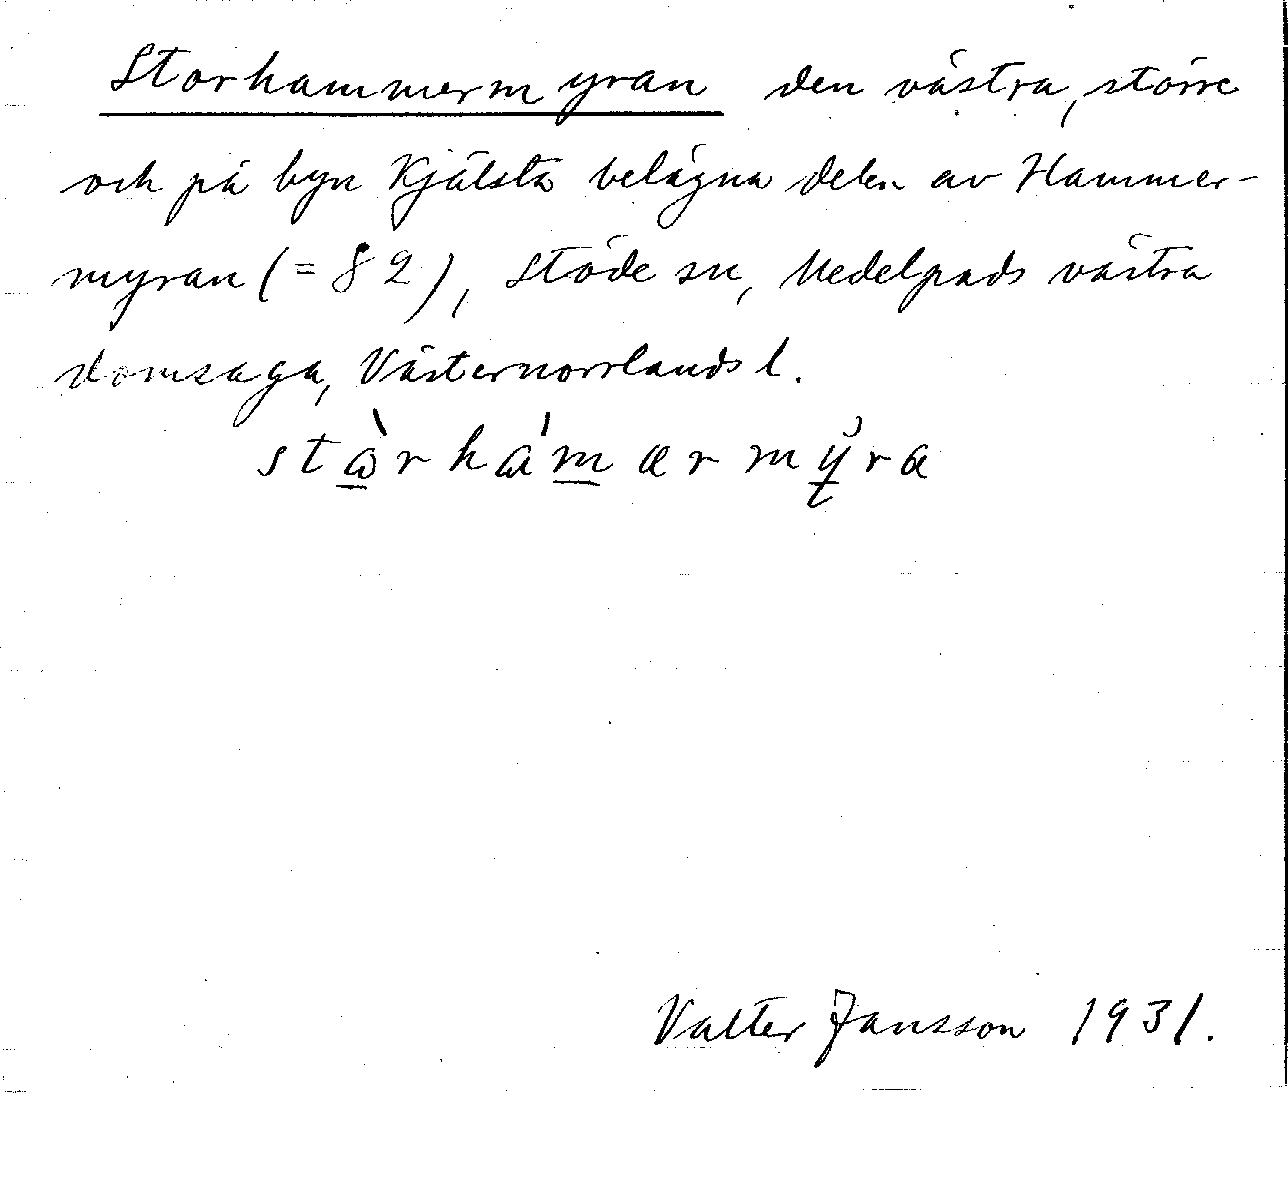 Storhammermyran den västra, större
och på byn Kjälsta belägna delen av Hammer-
myran (= 82), Stöde sn, Medelpads västra
domsaga, Västernorrlands l.
Valter Jansson 1931.